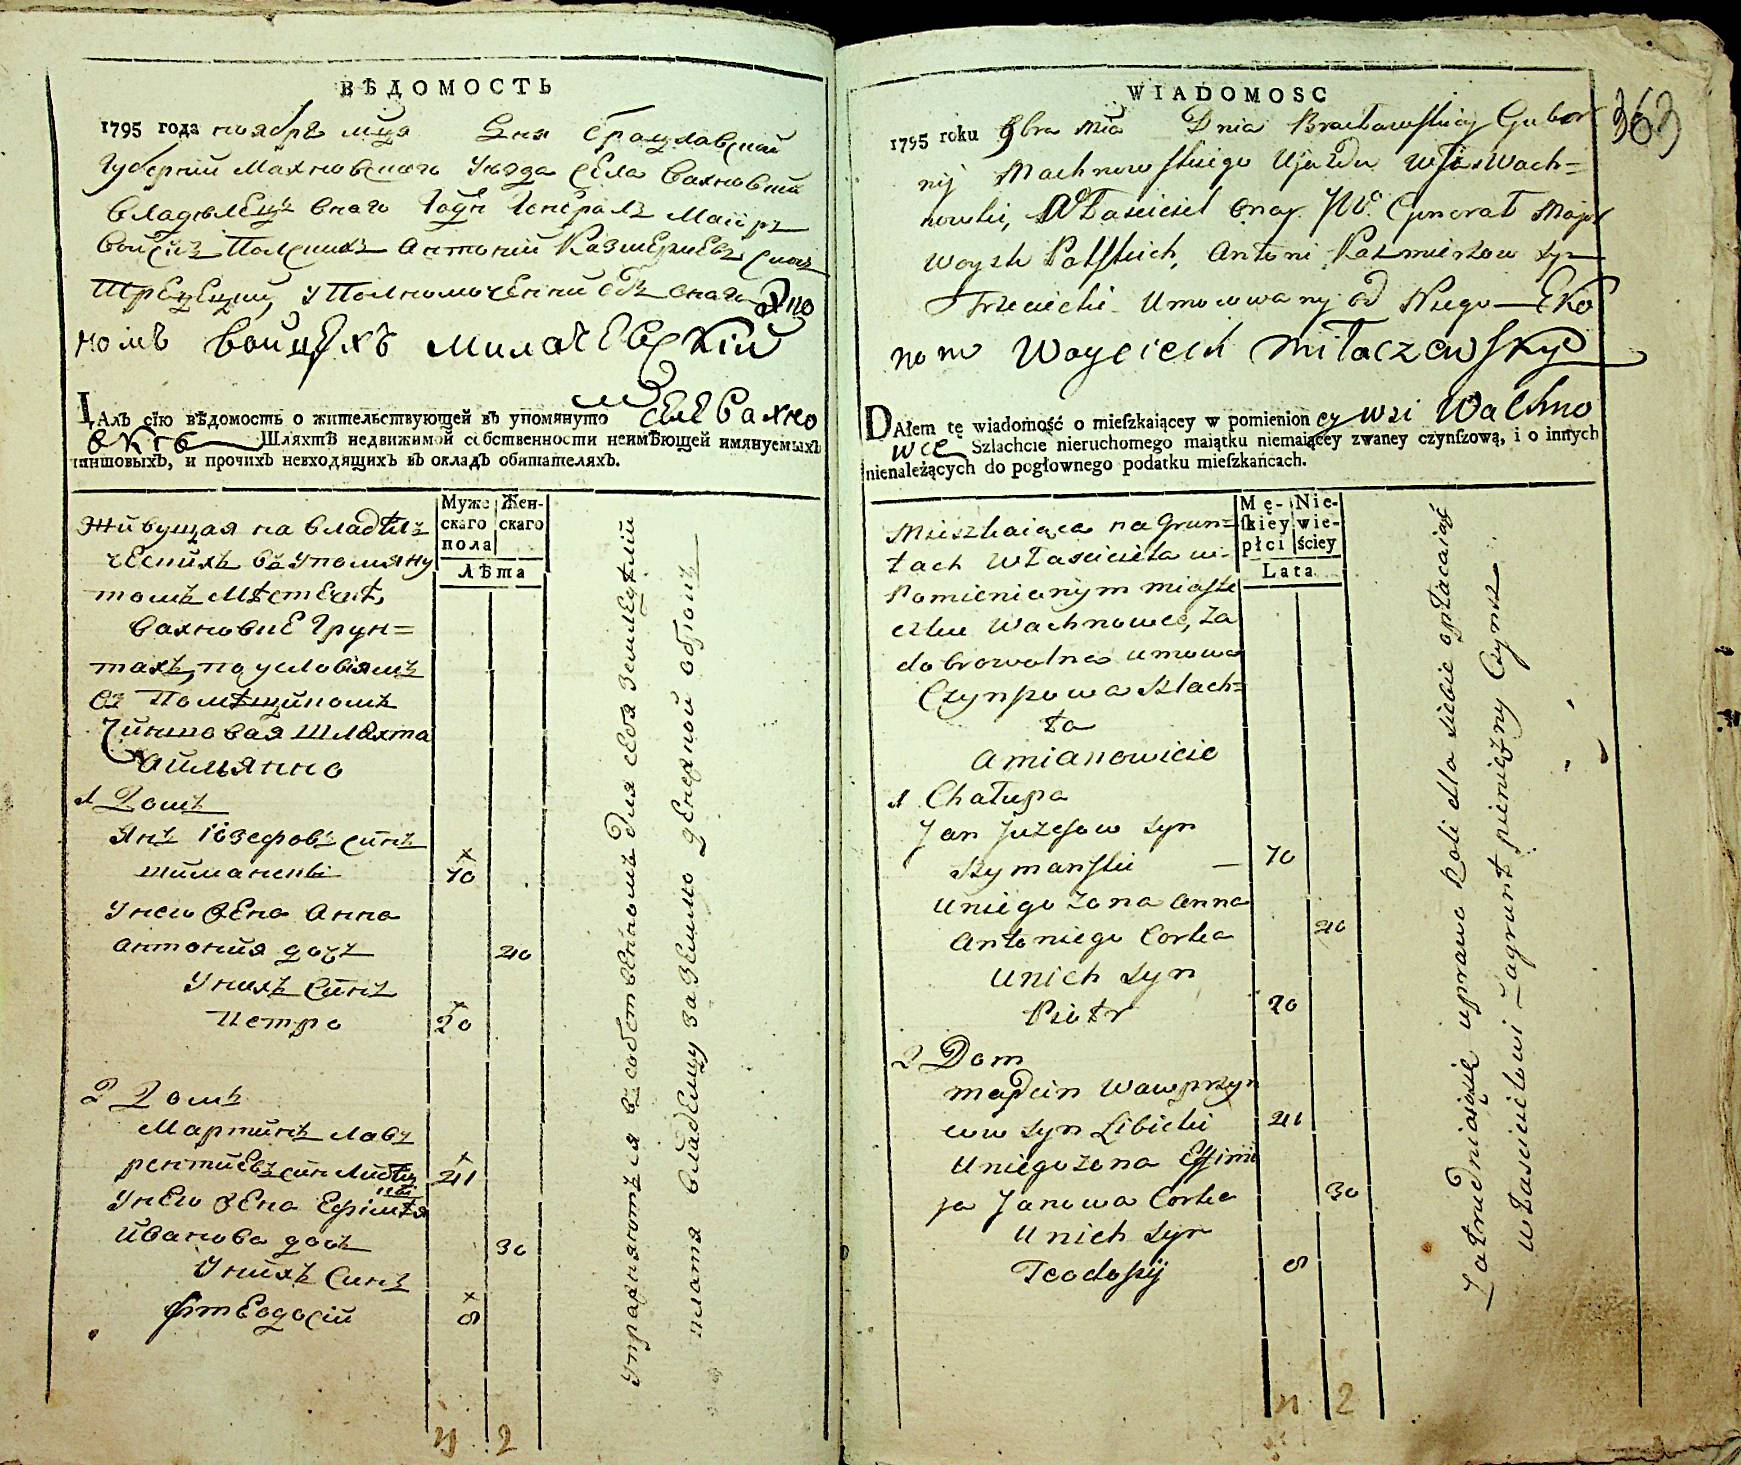 ВѢДОМОСТЬ
1795 года ноября мца Дня Брацлавской
Губернии Махновского Уезда села Вахновки
Владелецъ онаго Генералъ Маиоръ
Войскъ Полскихъ Антоний Казимериевъ синъ
Трецецкий, уполномоченний отъ онаго Эко
номъ Войцехъ Милачевский
ДАлъ сїю вѣдомость о жительствующей въ упомянуто селе Вахно
вке Шляхтѣ недвижимой собственности неимѣющей имянуемыхъ
чиншовыхъ, и прочихъ невходящихъ въ окладъ обитателяхъ.
Муже Жен-
скаго скаго
пола
Лѣта
Живущая на владѣль
ческихъ въ упомяну
томъ местечке
Вахновке грун=
тахъ, по условіямъ
съ помѣщикомъ
Чиншовая шляхта
1 Домъ
Янъ Іозефовъ синъ
Шимански 70
У него жена Анна
Антония дочъ 40
У нихъ синъ
Петро 20
2 Домъ
Мартинъ Лавъ
рентиевъ синъ 41
У него жена Ефимия
Иванова дочъ 30
У нихъ синъ
Фтеодосий 8
4 2
Упражняютъся въ собственномъ для себя земледѣлии
плата владелцу за землю денежной оброкъ
WIADOMOSC
363
1795 roku 9bra Mca Dnia Bracławskiey Guber
nij Machnowskiego Ujazdu Wsi Wach=
nowki, Właściciel onay JW. Generał Major
Woysk Polskich, Antoni Kazmirzow syn
Trzeciecki Umocowany od Niego Eko
nom Woyciech Miłaczewsky
DAłem tę wiadomość o mieſzkaiącey w pomienion ey wsi Wachno
wce Szlachcie nieruchomego maiątku niemaiącey zwaney czynſzową, i o innych
nienależących do pogłownego podatku mieſzkańcach.
Mę- Nie-
ſkiey wie-
płci ściey
Lata
Mieszkaiąca na Grun=
tach Właściciela w
Pomienionym miaste
czku Wachnowce, za
dobrowolną umową
Czynszowa Szlach=
ta
Amianowicie
1 Chałupa
Jan Juzefow syn
Szymanski 70
U niego żona Anna
Antoniego Corka 40
U nich syn
Piotr 20
2 Dom
Marcin Wawrzyn
cow syn Libicki 41
U niego żona Effimi
ja Janowa Corka 30
U nich syn
Teodosij 8
4 2
Zatrudniaiąsię uprawą Roli dla siebie opłacaiąć
właścicielowi Zagrunt pieniężny Czynsz